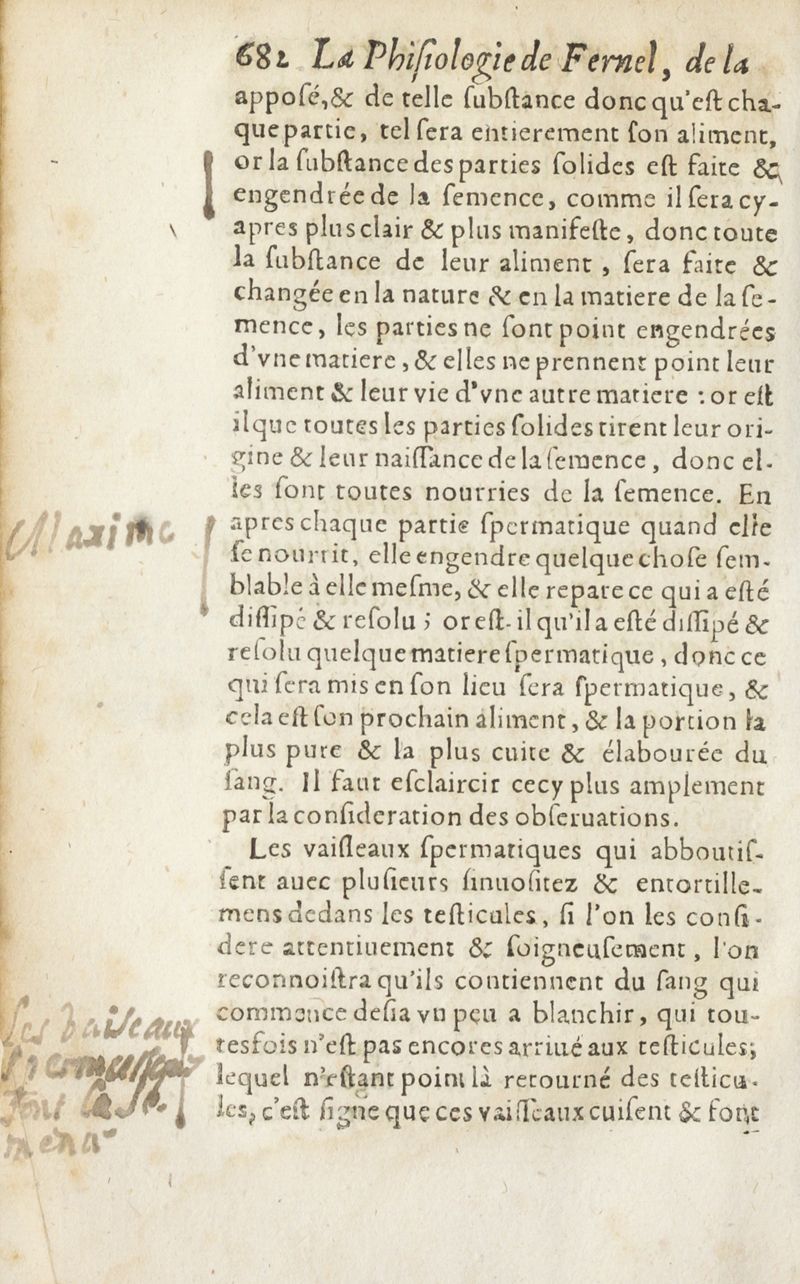 682 La Phiſiologie de Fernel, de la
appoſé,& de telle ſubſtance donc qu'eſt cha-
que partie, tel ſera entierement ſon aliment,
or la ſubſtance des parties ſolides eſt faite &
engendrée de la ſemence, comme il ſera cy-
apres plus clair & plus manifeſte, donc toute
la ſubſtance de leur aliment , ſera faite &
changée en la nature & en la matiere de la ſe-
mence, les parties ne ſont point engendrées
d'vne matiere , & elles ne prennent point leur
aliment & leur vie d'vne autre matiere : or eſt
il que toutes les parties ſolides tirent leur ori-
gine & leur naiſſance de la ſemence , donc el-
les ſont toutes nourries de la ſemence. En
Maxime
apres chaque partie ſpermatique quand elle
ſe nourrit, elle engendre quelque choſe ſem-
blable à elle meſme, & elle repare ce qui a eſté
diſſipé & reſolu ; or eſt-il qu'il a eſté diſſipé &
reſolu quelque matiere ſpermatique , donc ce
qui ſera mis en ſon lieu ſera ſpermatique, &
cela eſt ſon prochain aliment , & la portion la
plus pure & la plus cuite & élabourée du
ſang. Il faut eſclaircir cecy plus amplement
par la conſideration des obſeruations.
Les vaiſſeaux ſpermatiques qui abboutiſ-
ſent auec pluſieurs ſinuoſitez & entortille-
mens dedans les teſticules, ſi l'on les conſi-
dere attentiuement & ſoigneuſement , l'on
reconnoiſtra qu'ils contiennent du ſang qui
commence deſia vn peu a blanchir, qui tou-
les vaiſeaux
tesfois n'eſt pas encores arriué aux teſticules;
lequel n'eſtant point là retourné des teſticu-
les, c'eſt ſigne que ces vaiſſeaux cuiſent & font